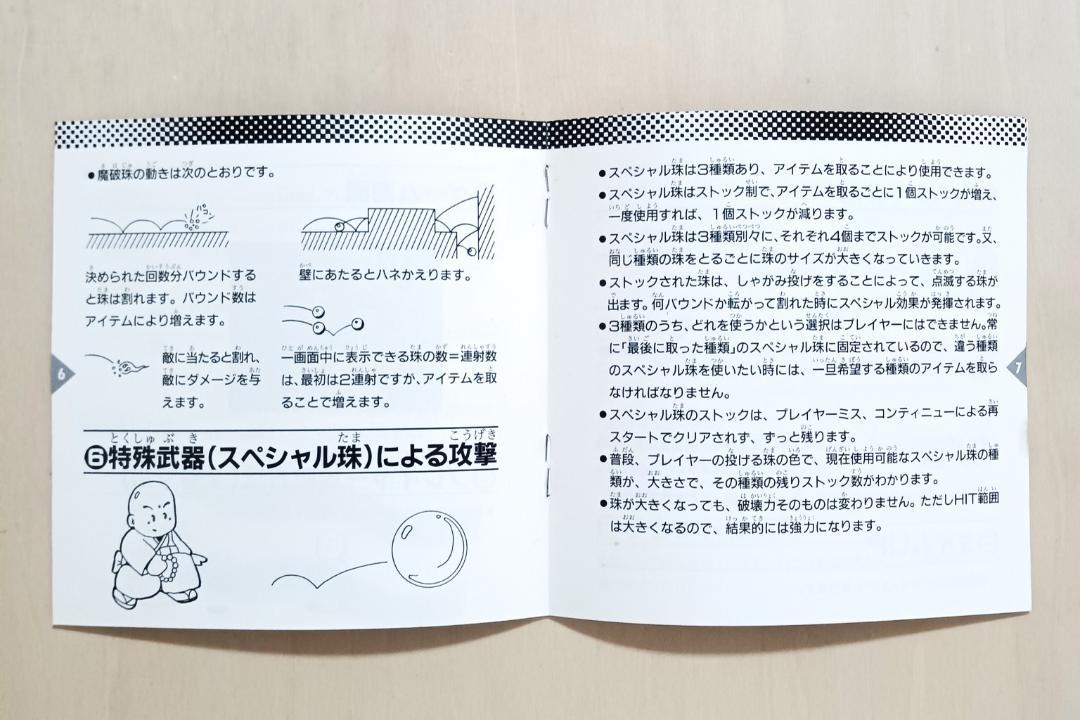 ●魔破珠の動きは次のとおりです。
パコン
決められた回数分バウンドする
と珠は割れます。バウンド数は
アイテムにより増えます。
壁にあたるとハネかえります。
敵に当たると割れ、
敵にダメージを与
えます。
一画面中に表示できる珠の数=連射数
は、最初は2連射ですが、アイテムを取
ることで増えます。
⑥特殊武器(スペシャル珠)による攻撃
6
●スペシャル珠は3種類あり、アイテムを取ることにより使用できます。
●スペシャル珠はストック制で、アイテムを取るごとに1個ストックが増え、
一度使用すれば、1個ストックが減ります。
●スペシャル珠は3種類別々に、それぞれ4個までストックが可能です。又、
同じ種類の珠をとるごとに珠のサイズが大きくなっていきます。
●ストックされた珠は、しゃがみ投げをすることによって、点滅する珠が
出ます。何バウンドか転がって割れた時にスペシャル効果が発揮されます。
●3種類のうち、どれを使うかという選択はプレイヤーにはできません。常
に「最後に取った種類」のスペシャル珠に固定されているので、違う種類
のスペシャル珠を使いたい時には、一旦希望する種類のアイテムを取ら
なければなりません。
●スペシャル珠のストックは、プレイヤーミス、コンティニューによる再
スタートでクリアされず、ずっと残ります。
●普段、プレイヤーの投げる珠の色で、現在使用可能なスペシャル珠の種
類が、大きさで、その種類の残りストック数がわかります。
●珠が大きくなっても、破壊力そのものは変わりません。ただしHIT範囲
は大きくなるので、結果的には強力になります。
7